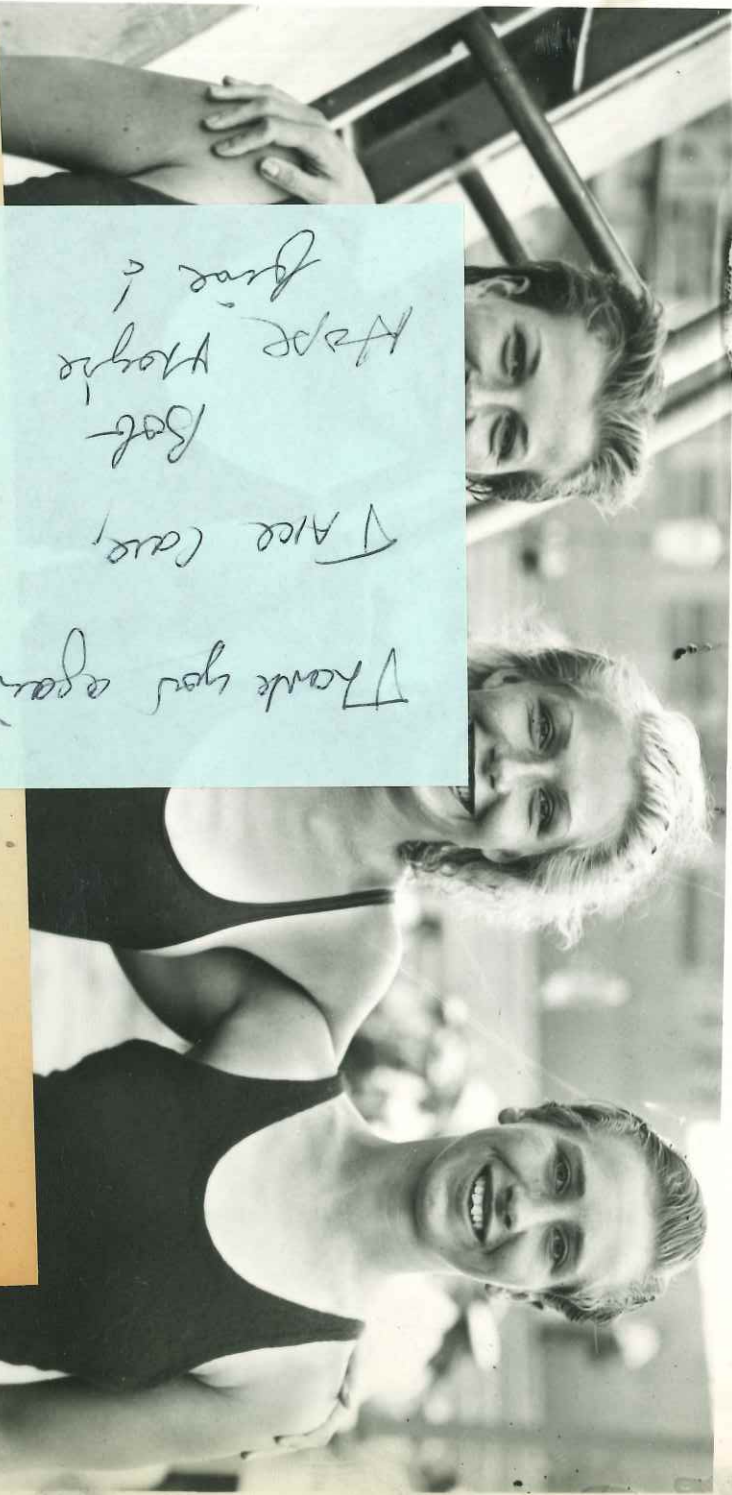 Thank you again
Take Care,
Bob-
Hope
fine!